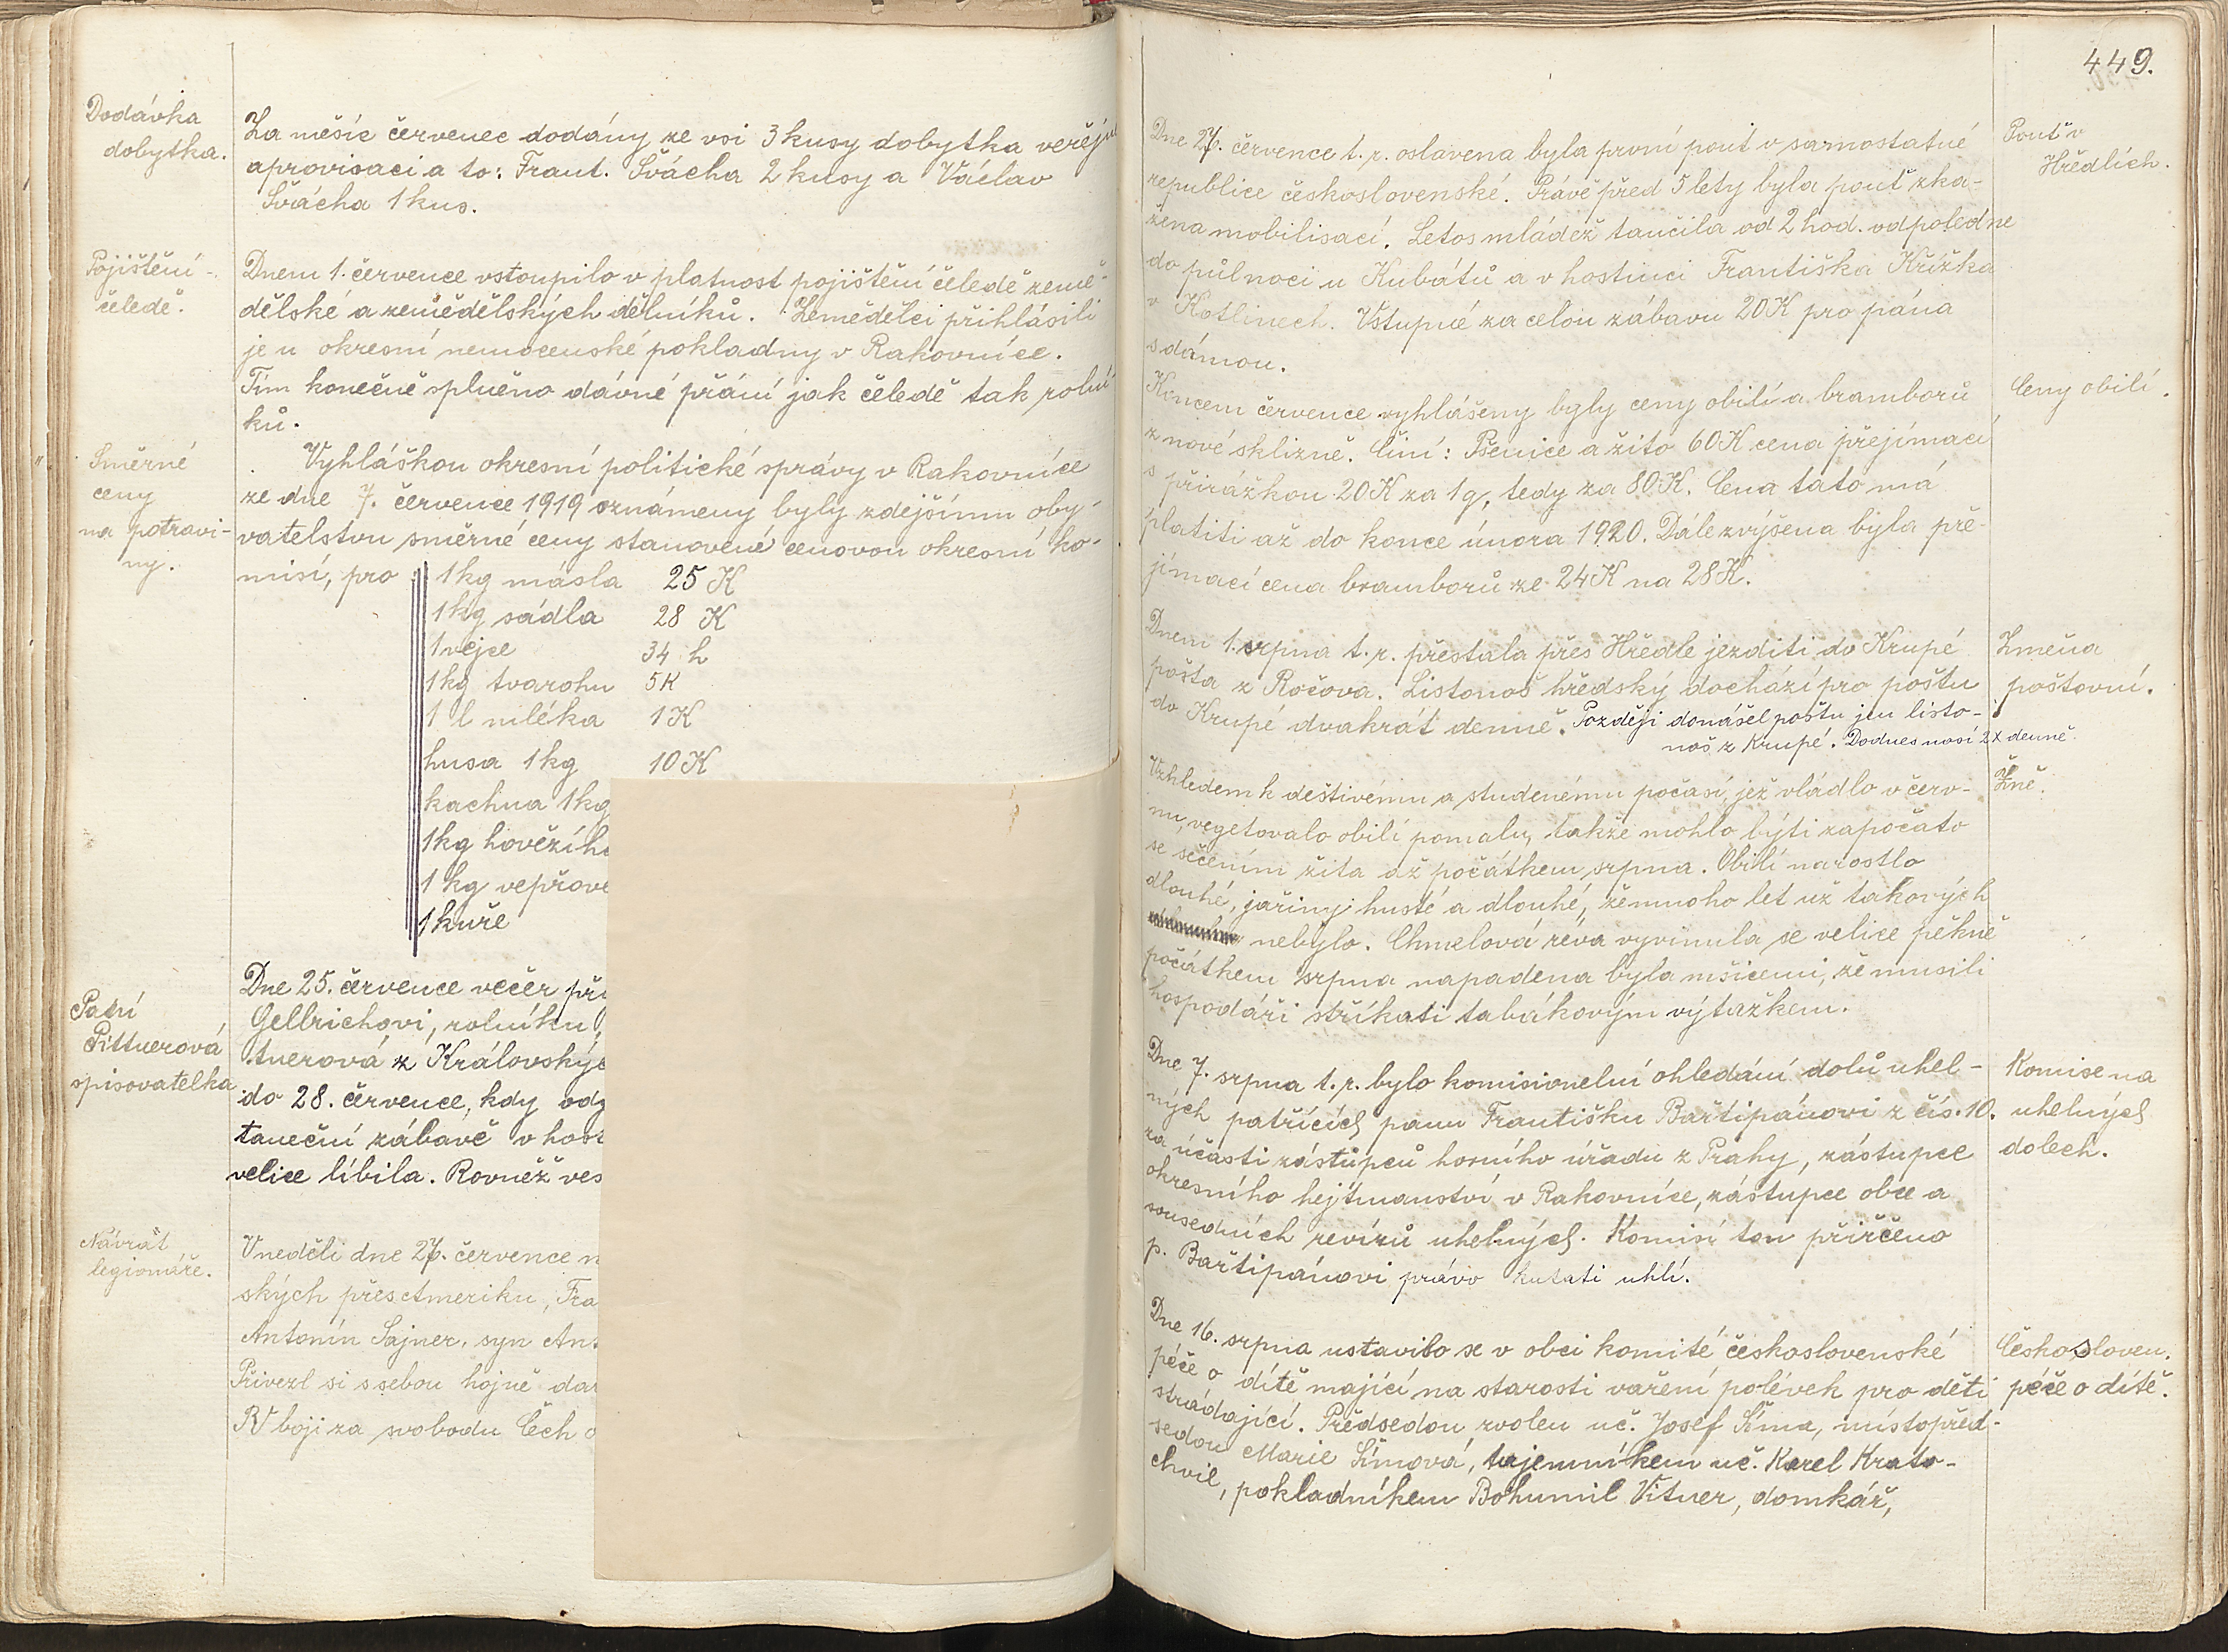 Dodávka
dobytka.
Za měsíc červenec dodány ze vsi 3 kusy dobytka veřej
aprovisaci a to: Frant. Švácha 2 kusy a Václav
Švácha 1 kus.
Pojištění
čeledě.
Dnem 1. července vstoupilo v platnost pojištění čeledě země-
dělské a zemědělských dělníků. Zemědělci přihlásili
je u okresní nemocenské pokladny v Rakovníce.
Tím konečně splněno dávné přání jak čeledě tak rolní
ků.
Směrné
ceny
na potravi-
ny.
Vyhláškou okresní politické správy v Rakovníce
ze dne 7. července 1919 oznámeny byly zdejšímu oby-
vatelstvu směrné ceny stanovené cenovou okresní ko-
misí, pro : 1 kg másla 25 K
1 kg sádla 28 K
1 vejce 34 h
1 kg tvarohu 5 K
1 l mléka 1 K
husa 1 kg 10 K
kachna 1 kg
1 kg hovězího
1 kg vepřové
1 kuře
Paní
Pittnerová
spisovatelka
Dne 25. července večer při
Gellrichovi, rolníku
tnerová z Královskýc
do 28. července, kdy odj
taneční zábavě v host
velice líbila. Rovněž ves
Návrat
legionáře.
V neděli dne 27. července n
ských přes Ameriku, Fra
Antonín Sajner, syn Ant
Přivezl si s sebou hojně dar
V boji za svobodu Čech
449.
Dne 27. července t. r. oslavena byla první pouť v samostatné
republice československé. Právě před 5 lety byla pouť zka-
žena mobilisací. Letos mládež tančila od 2 hod. odpoledne
do půlnoci u Kubátů a v hostinci Františka Křížka
v Kotlinech. Vstupné za celou zábavu 20 K pro pána
s dámou.
Pouť v
Hředlích.
Koncem července vyhlášeny byly ceny obilí a bramborů
z nové sklizně. Činí: Pšenice a žito 60 K cena přejímací
s přirážkou 20 K za 1 q, tedy za 80 K. Cena tato má
platiti až do konce února 1920. Dále zvýšena byla pře-
jímací cena bramborů ze 24 K na 28 K.
Ceny obilí.
Dnem 1. srpna t. r. přestala přes Hředle jezditi do Krupé
pošta z Ročova. Listonoš hředský dochází pro poštu
do Krupé dvakrát denně. Později donášel poštu jen listo-
noš z Krupé. Dodnes nosí 2x denně.
Změna
poštovní.
Vzhledem k deštivému a studenému počasí, jež vládlo v červ-
nu, vegetovalo obilí pomalu, takže mohlo býti započato
se sečením žita až počátkem srpna. Obilí narostlo
dlouhé, jařiny husté a dlouhé, že mnoho let už takových
nebylo. Chmelová réva vyvinula se velice pěkně
počátkem srpna napadena byla mšicemi, že musili
hospodáři stříkati tabákovým výtažkem.
Žně.
Dne 7. srpna t. r. bylo komisionelní ohledání dolů uhel-
ných patřících panu Františku Bařtipánovi z čís. 10.
za účasti zástupců horního úřadu z Prahy, zástupce
okresního hejtmanství v Rakovníce, zástupce obce a
sousedních revírů uhelných. Komisí tou přiřčeno
p. Bařtipánovi právo kutati uhlí.
Komise na
uhelných
dolech.
Dne 16. srpna ustavilo se v obci komité československé
péče o dítě mající na starosti vaření polévek pro děti
strádající. Předsedou zvolen uč. Josef Šíma, místopřed-
sedou Marie Šímová, tajemníkem uč. Karel Krato-
chvil, pokladníkem Bohumil Vitner, domkář,
Českosloven.
péče o dítě.